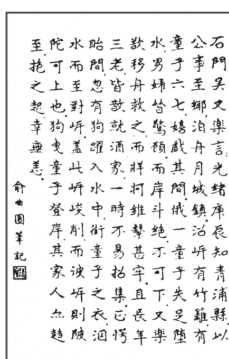 石門吳又樂言光緒庚辰知青浦縣以
公事至鄉泊舟月城鎮沿岍有竹籬有
童子六七嬉戲其間俄一童子失足墮
水男婦皆驚顧而岸斗絕不可下又樂
欲移舟救之而牂牁維繫甚牢且長年
三老皆就酒家一時不易招集正愕
眙間忽有狗躍入水中銜童子之衣泅
水而至對岍蓋此岍峻削而彼岍則陂
陀可上也狗曳童子登岸其家人亦趨
至抱之起幸無恙
俞曲園筆記